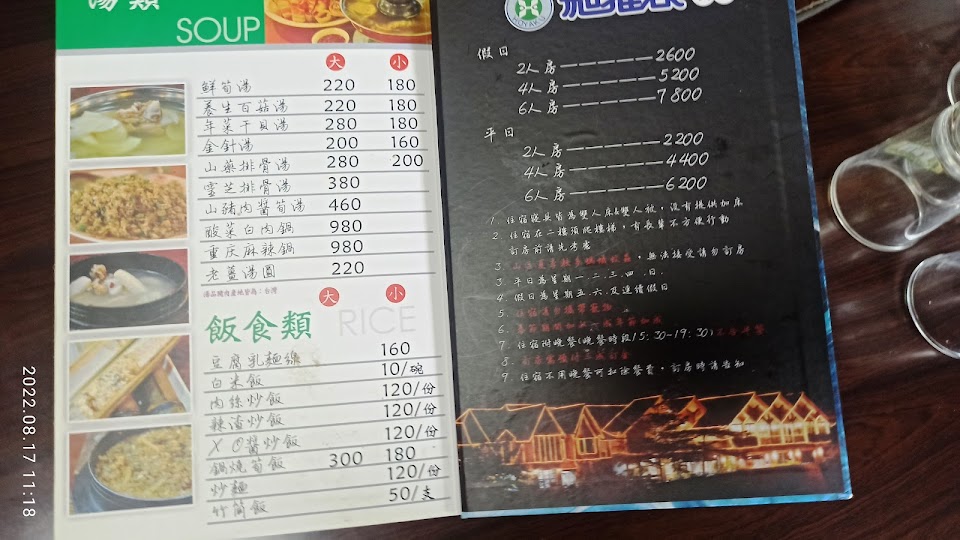 湯類
SOUP
大 小
鮮筍湯 220 180
養生百菇湯 220 180
年菜干貝湯 280 180
金針湯 200 160
山藥排骨湯 280 200
靈芝排骨湯 380
山豬肉醬筍湯 460
酸菜白肉鍋 980
重庆麻辣鍋 980
老薑湯圓 220
湯品豬肉產地皆為：台灣
大 小
飯食類 RICE
豆腐乳麵線 160
白米飯 10/碗
肉絲炒飯 120/份
辣渣炒飯 120/份
XO醬炒飯 120/份
鍋燒筍飯 300 180
炒麵 120/份
竹筒飯 50/支
HOYAKU
假日
2人房 2600
4人房 5200
6人房 7800
平日
2人房 2200
4人房 4400
6人房 6200
1. 住宿寢具皆為雙人床&雙人被，沒有提供加床
2. 住宿在二樓須爬樓梯，有長輩不方便行動
訂房前請先考慮
3. 無法接受請勿訂房
3 平日為星期一.二.三.四.日.
4 假日為星期五.六.及連續假日
5. 住宿
6.
7 住宿附晚餐(晚餐時段15:30-19:30)
8
9. 住宿不用晚餐可扣除餐費，訂房時請告知
2022.08.17 11:18